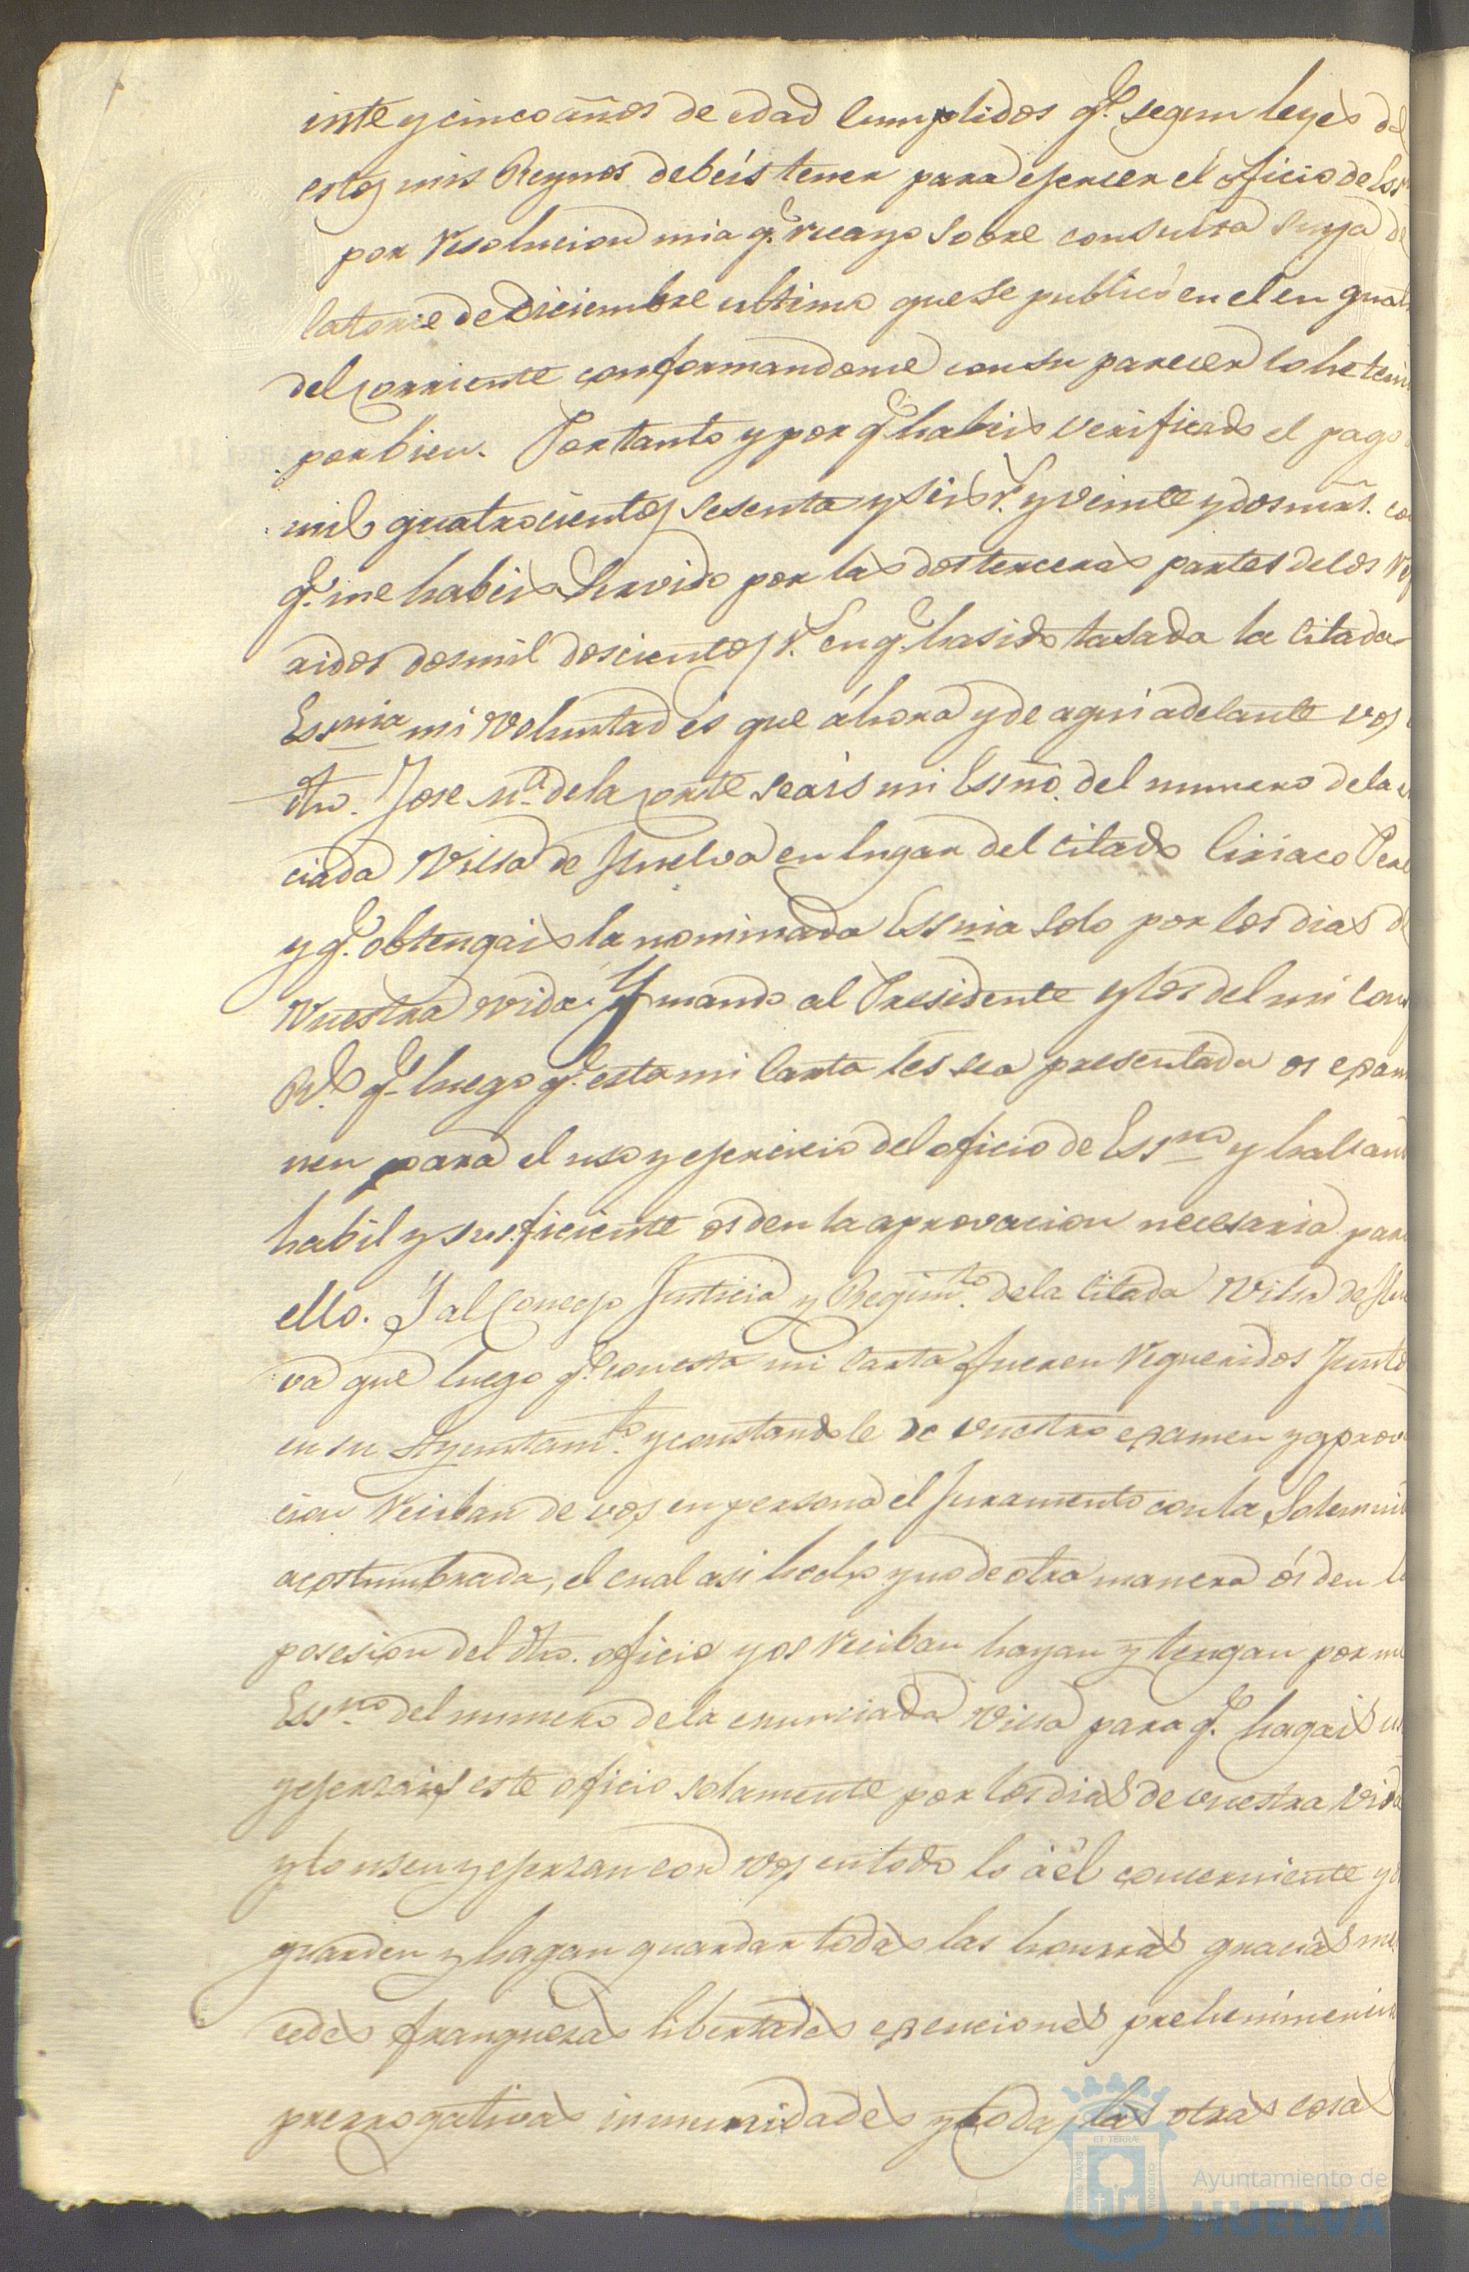 inte y cinco años de edad cumplidos q.e segun leyes de
estos mis Reynos debeis tener para ejercer el oficio de Ess
por resolucion mia q.e recayo sobre consulta suya de
catorce de Diciembre ultimo que se publicó en el en quat
del corriente conformandome con su parecer lo he teni
por bien. Por tanto y por q.e habeis verificado el pago
mil quatrocientos sesenta y seis r.s y veinte y dos mrs. co
q.e me habeis servido por las dos terceras partes de los re
ridos dos mil doscientos r.s en q.e ha sido tasada la citada
Essnia mi voluntad es que áhora y de aqui adelante vos
dho. Jose M.a de la Corte seais mi Essno. del numero de la
ciada Villa de Huelva en lugar del citado Ciriaco Pere
y q.e obtengais la nominada Essnia solo por los dias de
vuestra vida. Y mando al Presidente y los del mi Cons
R.l q.e luego q.e esta mi Carta les sea presentada os exam
nen para el uso y ejercicio del oficio de Ess.no y halland
habil y suficiente os den la aprovacion necesaria para
ello. Y al Concejo Justicia y Regim.to de la citada Villa de Hu
va que luego q.e con esta mi carta fueren requeridos Junto
en su Ayuntam.to y constandole de vuestro examen y aprov
cion reciban de vos en persona el Juramento con la Solemni
acostumbrada, el cual asi hecho y no de otra manera ós den l
posesion del dho. oficio y os reciban hayan y tengan por mi
Ess.no del numero de la enunciada Villa para q.e hagais us
y ejerzais este oficio solamente por los dias de vuestra vida
y lo usen y ejerzan con vos en todo lo á él concerniente y
guarden y hagan guardar todas las honrras gracias me
cedes franquezas libertades exenciones preheminencia
prerrogativas inmunidades y todas las otras cosas
Ayuntamiento de
HUELVA